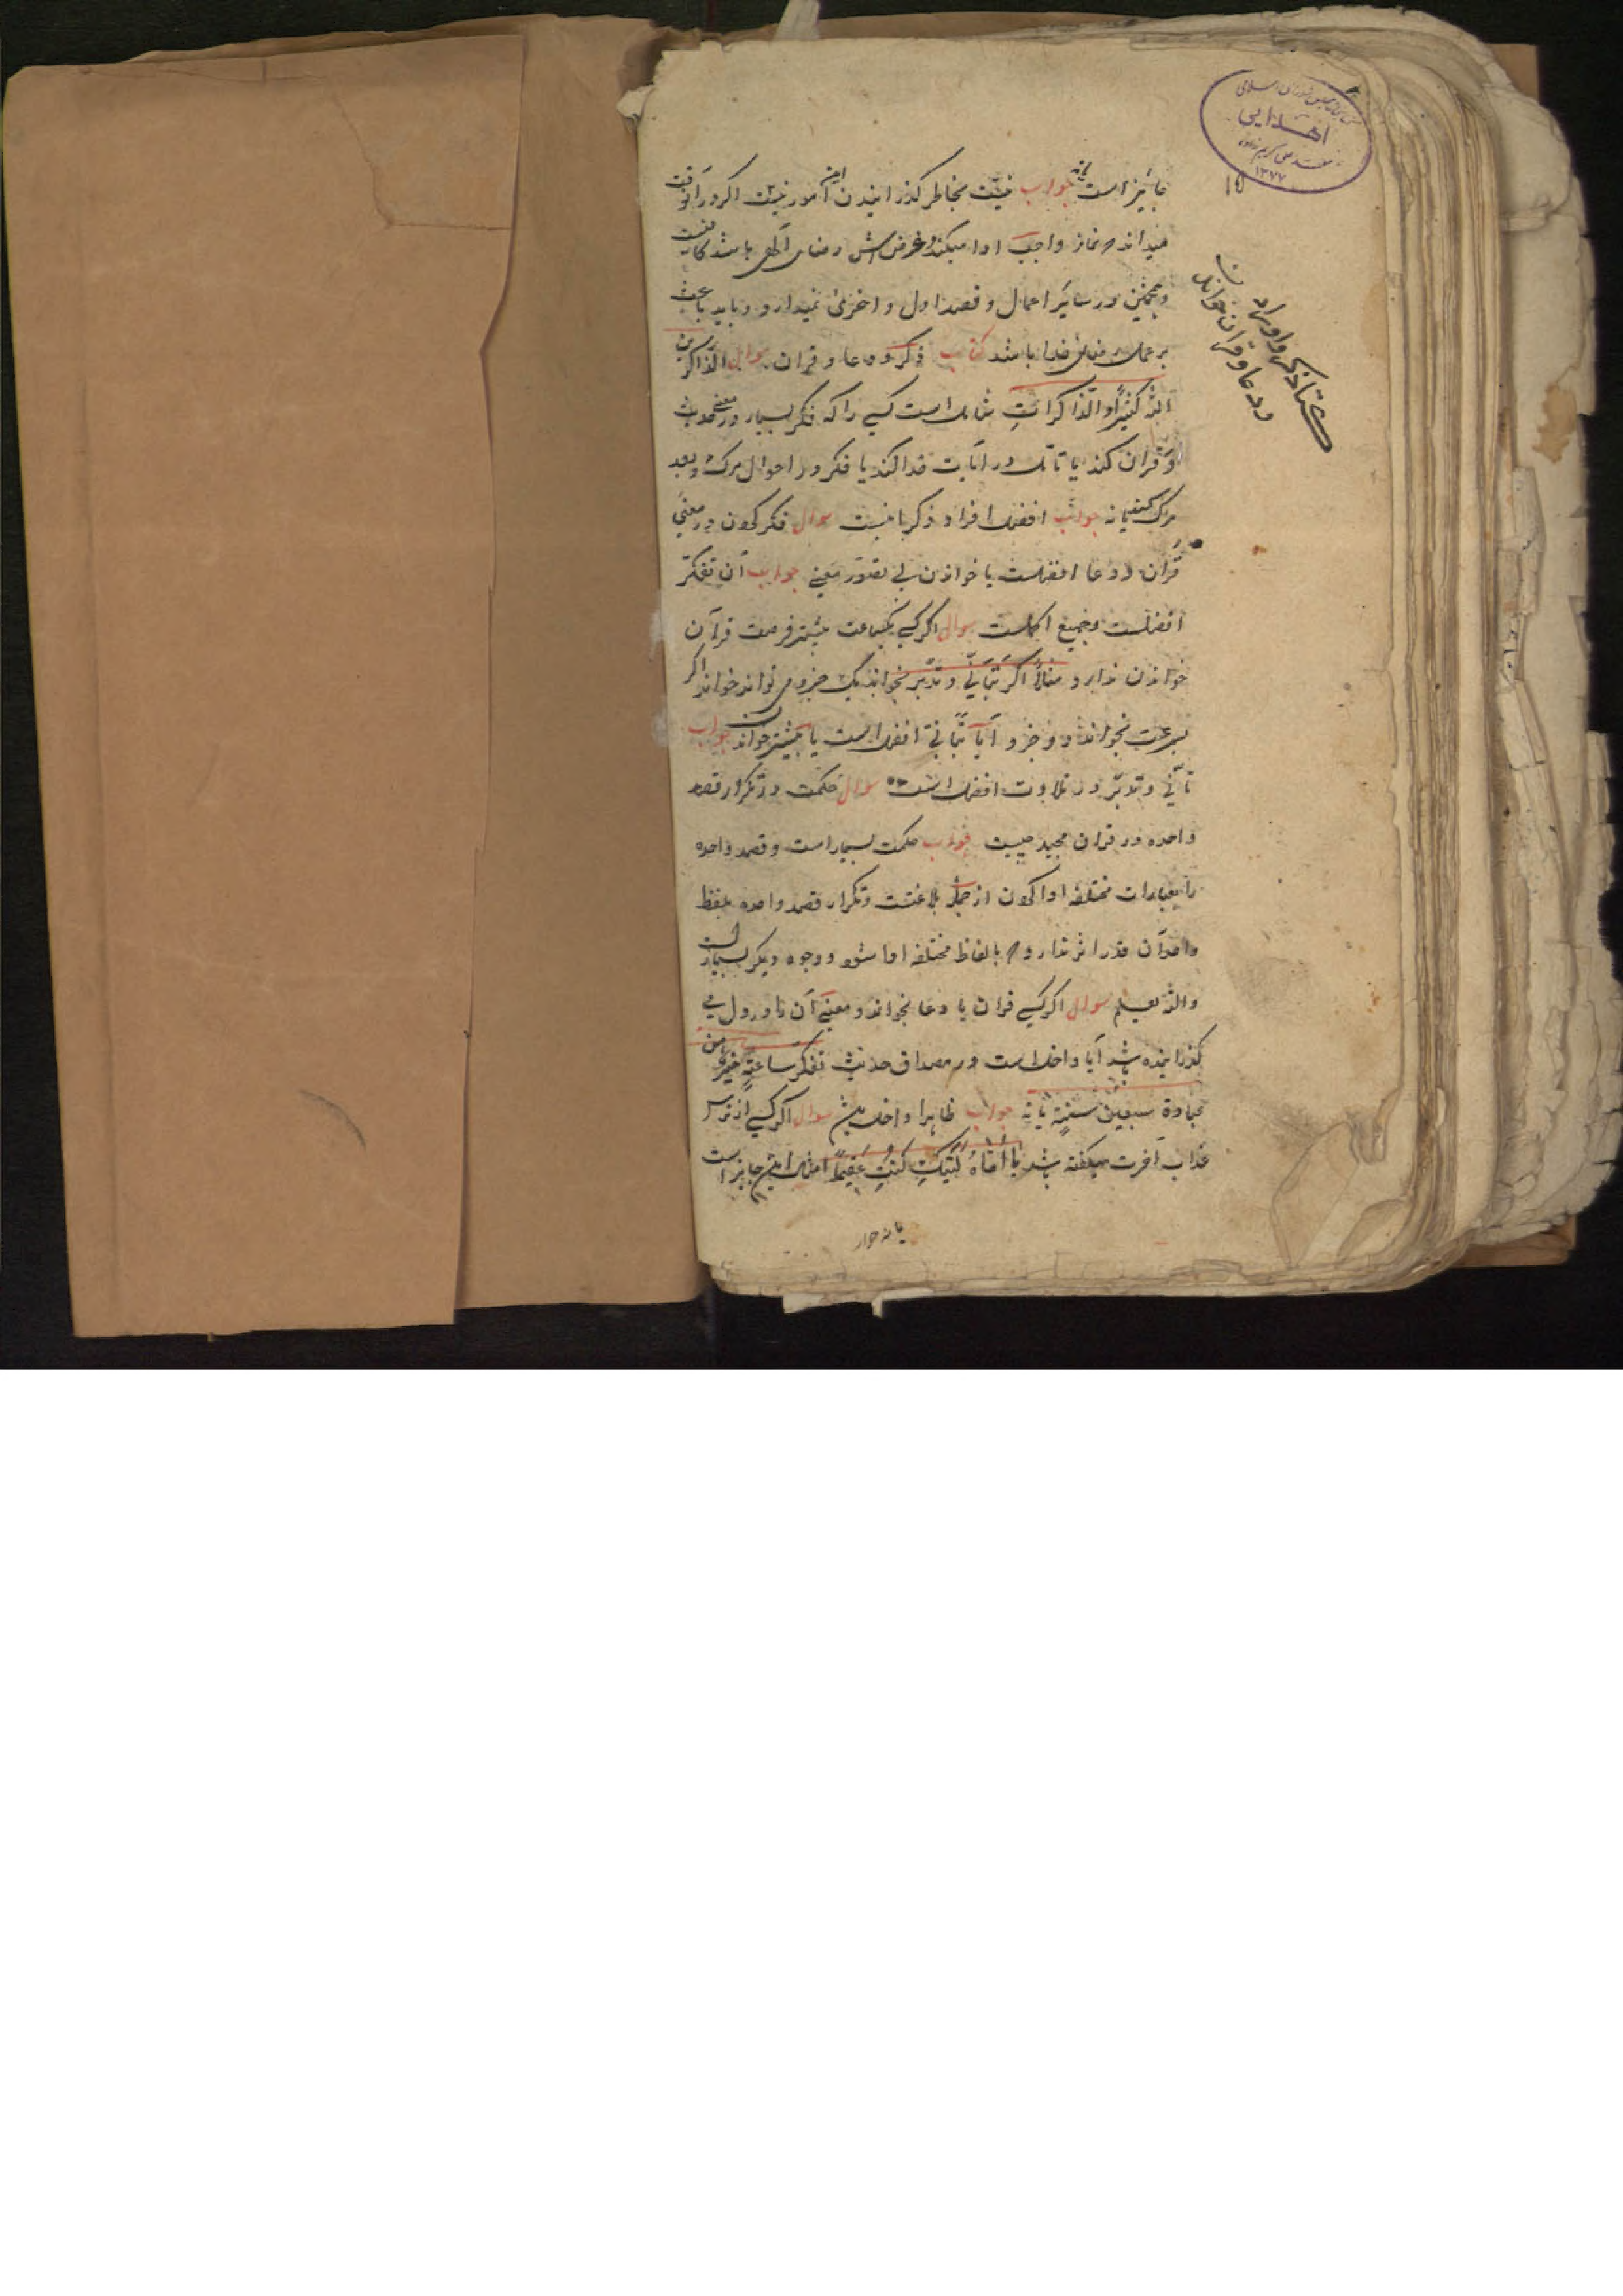 جائیز است یا نه جواب نیت بخاطر گذرانیدن این امور نیست اکر در آنوقت
میداند که نماز واجب ادا میکند و غرضش رضای آلهی باشد کافیست
و همچنین در سایر اعمال و قصد اول و اخری نمیدارد و باید باعث
بر عمل رضای خدا باشد کتاب ذکر و دعا و قران سوال الذاکرین
الله کثیرًا و الذاکرات شامل است کسی را که فکر بسیار در معنی حدیث
و قران کند یا تامل در آیات خدا کند یا فکر در احوال مرک و بعد
مرک کند یا نه جواب افضل افراد ذکرها نیست سوال فکر کردن در معنی
قران و دعا افضلست یا خواندن بی تصور معنی جواب آن تفکر
افضلست و جمیع اکملست سوال اکر کسی یکساعت بیشتر فرصت قرآن
خواندن ندارد مثلاً اکر بتأنّی و تدبّر بخواند یک جزو می تواند خواند اکر
بسرعت بخواند دو جزو آیا بتأنی افضل است یا بیشتر خواندن جواب
تأنّی و تدبّر در تلاوت افضل است سوال حکمت در تکرار قصه
واحده در قران مجید چیست جواب حکمت بسیار است و قصه واحده
را بعبارات مختلفه ادا کردن از جمله بلاغتست و تکرار قصه واحده بلفظ
واحد آن قدر اثر ندارد که بالفاظ مختلفه ادا شود و وجوه دیکر بسیار است
والله یعلم سوال اکر کسی قران یا دعا بخواند و معنی آن تا در دل بی
گذرانیده شد آیا داخل است در مصداق حدیث تفکر ساعةٍ خیرٌ من
عبادة سبعین سنةٍ یا نه جواب ظاهرا داخل باشد سوال اکر کسی از ترس
عذاب آخرت میگفته باشد یا اماه لیتکِ کنتِ عقیماً امثال این جایز است
یا نه جواب
کتاب ذکر و اوراد
و دعا و قران خواندن
۱۵
کتابخانه مجلس شورای اسلامی
اهدایی
۱۳۷۷